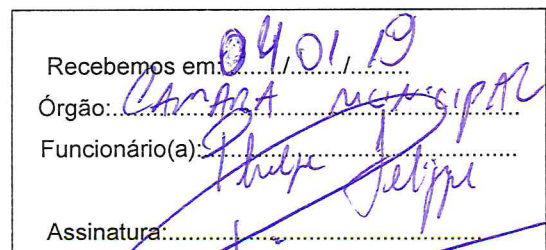 Recebemos em: 04/01/19
Órgão: CAMARA MUNICIPAL
Funcionário(a): Phelipe Felippe
Assinatura: